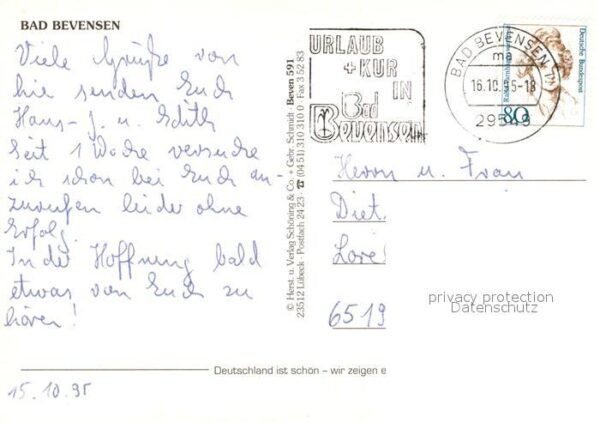 BAD BEVENSEN
Viele Grüße von
hier senden Euch
Hans-J. u. Edith
Seit 1 Woche versuche
ich schon bei Euch an-
zurufen leider ohne
Erfolg.
In der Hoffnung bald
etwas von Euch zu
hören!
15.10.95
© Herst. u. Verlag Schöning & Co. + Gebr. Schmidt Beven 591
23512 Lübeck · Postfach 24 23 · ☎ (04 51) 310 310 0 · Fax 3 52 83
URLAUB
+ KUR
IN
Bad
Bevensen
BAD BEVENSEN
ma
16.10.95-18
29549
Deutsche Bundespost
80
Herrn u. Frau
Diet
Lore
6519
privacy protection
Datenschutz
Deutschland ist schön – wir zeigen e